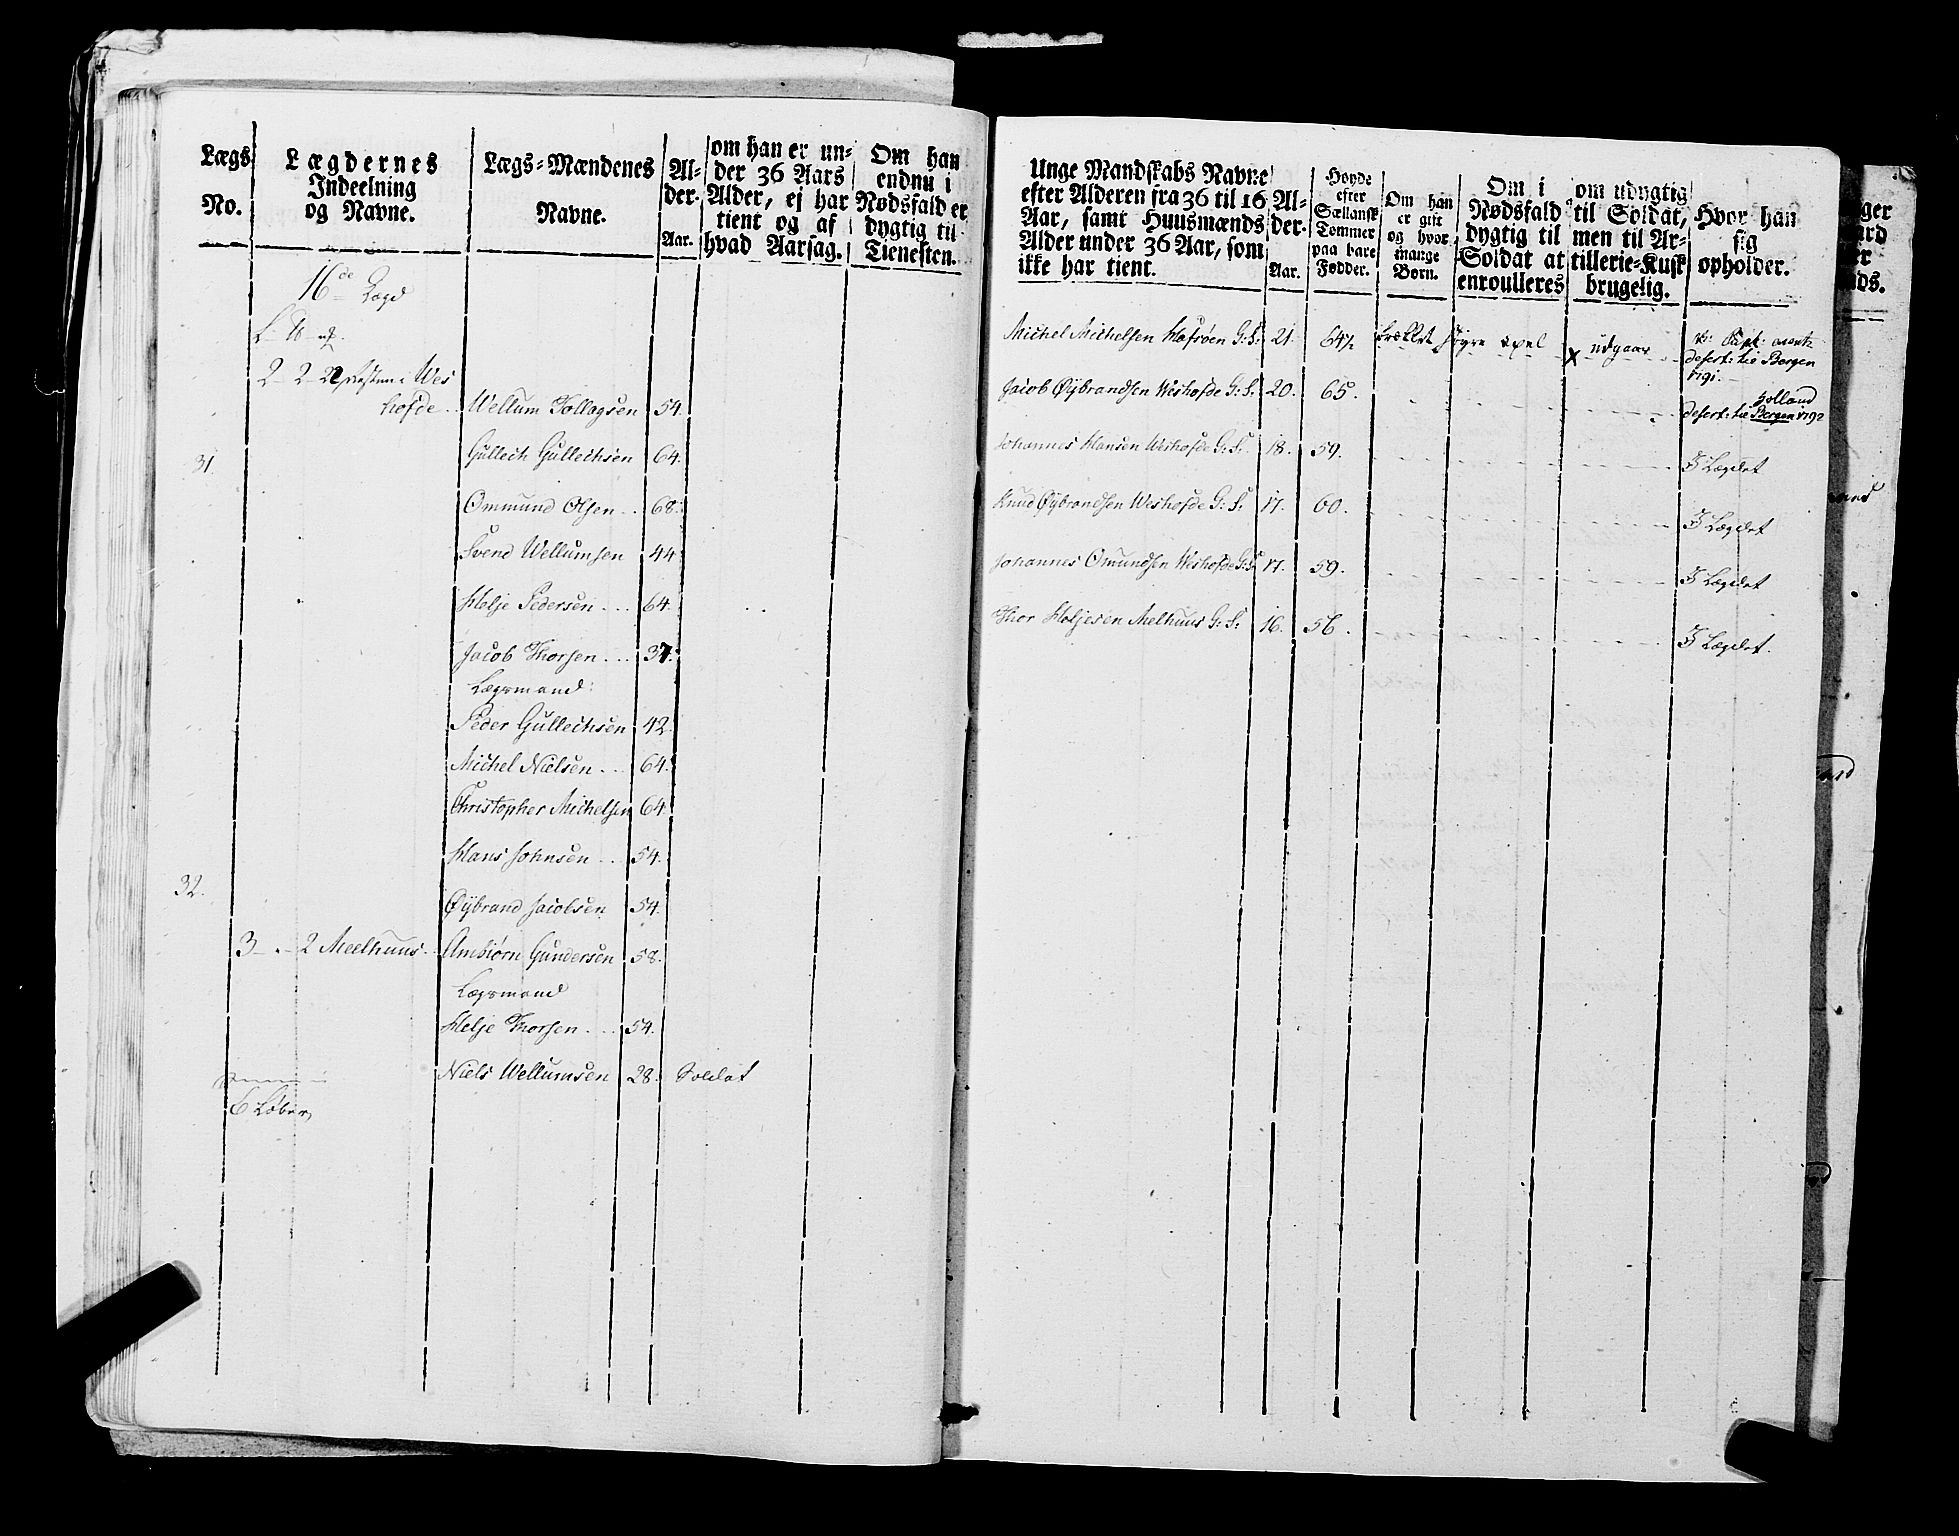 Lægs
No.
Lægdernes
Indeelning
og Navne.
Lægs=Mændenes
Navne.
Al-
der.
Aar.
om han er un-
der 36 Aars
Alder, ej har
tient og af
hvad Aarsag.
Om han
endnu i
Nødsfald er
dygtig til
Tienesten.
16de Lægd
2 - 2 - Wes
hofde .. Wellum Tollagsen 54.
31. Gullech Gullechsen 64.
Ommund Olsen .. 68.
Svend Wellumsen 44
Helje Pedersen .... 64.
Jacob Thorsen .... 37.
Lægsmand:
Peder Gullechsen 42.
Michel Nielsen ... 64.
Christopher Michelsen 64.
Hans Johnsen ... 54.
32. Øÿbrand Jacobsen 54.
3 - 2 Meelhuus .. Ambiørn Gundersen 58.
Lægsmand
Helje Thorsen .... 54.
Niels Wellumsen 28. Soldat
6 Løber
Unge Mandskabs Navne
efter Alderen fra 36 til 16
Aar, samt Huusmænds
Alder under 36 Aar, som
ikke har tient.
Al-
der.
Aar.
Høyde
efter
Sællansk
Tommer
paa bare
Fødder.
Om han
er gift
og hvor
mange
Børn.
Om i
Nødsfald
dygtig til
Soldat at
enroulleres
om udygtig
til Soldat,
men til Ar-
tillerie=Kusk
brugelig.
Hvor han
sig
opholder.
Michel Michelsen Hafsøen G: S: 21. 64½ brækket høyre axel x udgaar
desert: tie Bergen
1791.
Jacob Øÿbrandsen Weshofde G: S: 20. 65.
Holland
desert: tie Bergen 1792
Johannes Hansen Weshofde G: S: 18. 59. I Lægdet
Knud Øÿbrandsen Weshofde G: S: 17. 60. I Lægdet
Johannes Omundsen Weshofde G: S: 17. 59. I Lægdet
Thor Heljesen Melhuus G: S: 16. 56. I Lægdet.